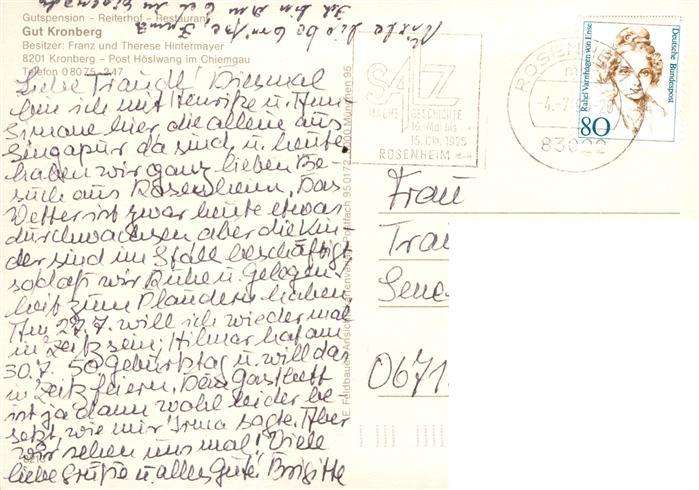 Gutspension - Reiterhof - Restaurant
Gut Kronberg
Besitzer: Franz und Therese Hintermayer
8201 Kronberg – Post Höslwang im Chiemgau
Telefon 08075-247
Liebe Traudl! Diesmal
bin ich mit Henrike u. Ann-
Simone hier, die alleine aus
Singapur da sind u. heute
haben wir ganz lieben Be-
such aus Rosenheim. Das
Wetter ist zwar heute etwas
durchwachsen aber die Kin-
der sind im Stall beschäftigt
sodaß wir Ruhe u. Gelegen-
heit zum Plaudern haben.
Am 27.7. will ich wieder mal
in Zeitz sein; Hilmar hat am
30.7. 50. Geburtstag u. will das
in Zeitz feiern. Das Gastbett
ist ja dann wohl leider be-
setzt, wie mir Irma sagte. Aber
wir sehen uns mal! Viele
liebe Grüße u. alles Gute! Brigitte
Postfach 95 01 72 · 8000 München 95
SALZ
GESCHICHTE
15.10.1995
ROSENHEIM
ROSENHEIM
83022
Rahel Varnhagen von Ense
Deutsche Bundespost
80
Frau
Trau
Sene
0671